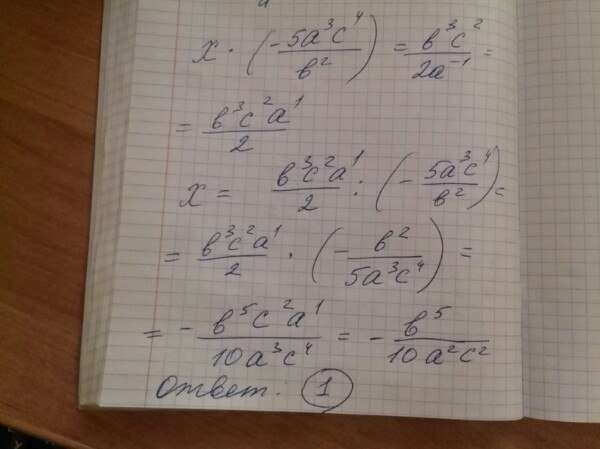 x · (-5a³c⁴/в²) = в³c²/2a⁻¹ =
= в³c²a¹/2
x = в³c²a¹/2 : (-5a³c⁴/в²) =
= в³c²a¹/2 · (-в²/5a³c⁴) =
= -в⁵c²a¹/10a³c⁴ = -в⁵/10a²c²
Ответ. 1